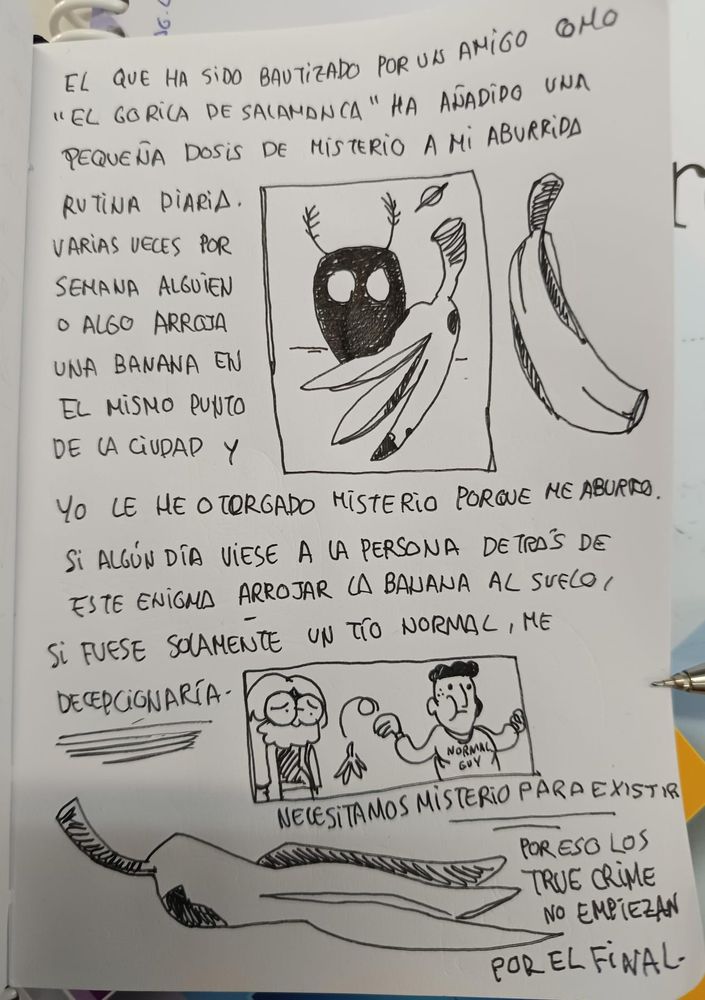 EL QUE HA SIDO BAUTIZADO POR UN AMIGO COMO
"EL GORILA DE SALAMANCA" HA AÑADIDO UNA
PEQUEÑA DOSIS DE MISTERIO A MI ABURRIDA
RUTINA DIARIA.
VARIAS VECES POR
SEMANA ALGUIEN
O ALGO ARROJA
UNA BANANA EN
EL MISMO PUNTO
DE LA CIUDAD Y
YO LE HE OTORGADO MISTERIO PORQUE ME ABURRO.
SI ALGÚN DÍA VIESE A LA PERSONA DETRÁS DE
ESTE ENIGMA ARROJAR LA BANANA AL SUELO,
SI FUESE SOLAMENTE UN TÍO NORMAL, ME
DECEPCIONARÍA.
NORMAL
GUY
NECESITAMOS MISTERIO PARA EXISTIR
POR ESO LOS
TRUE CRIME
NO EMPIEZAN
POR EL FINAL.